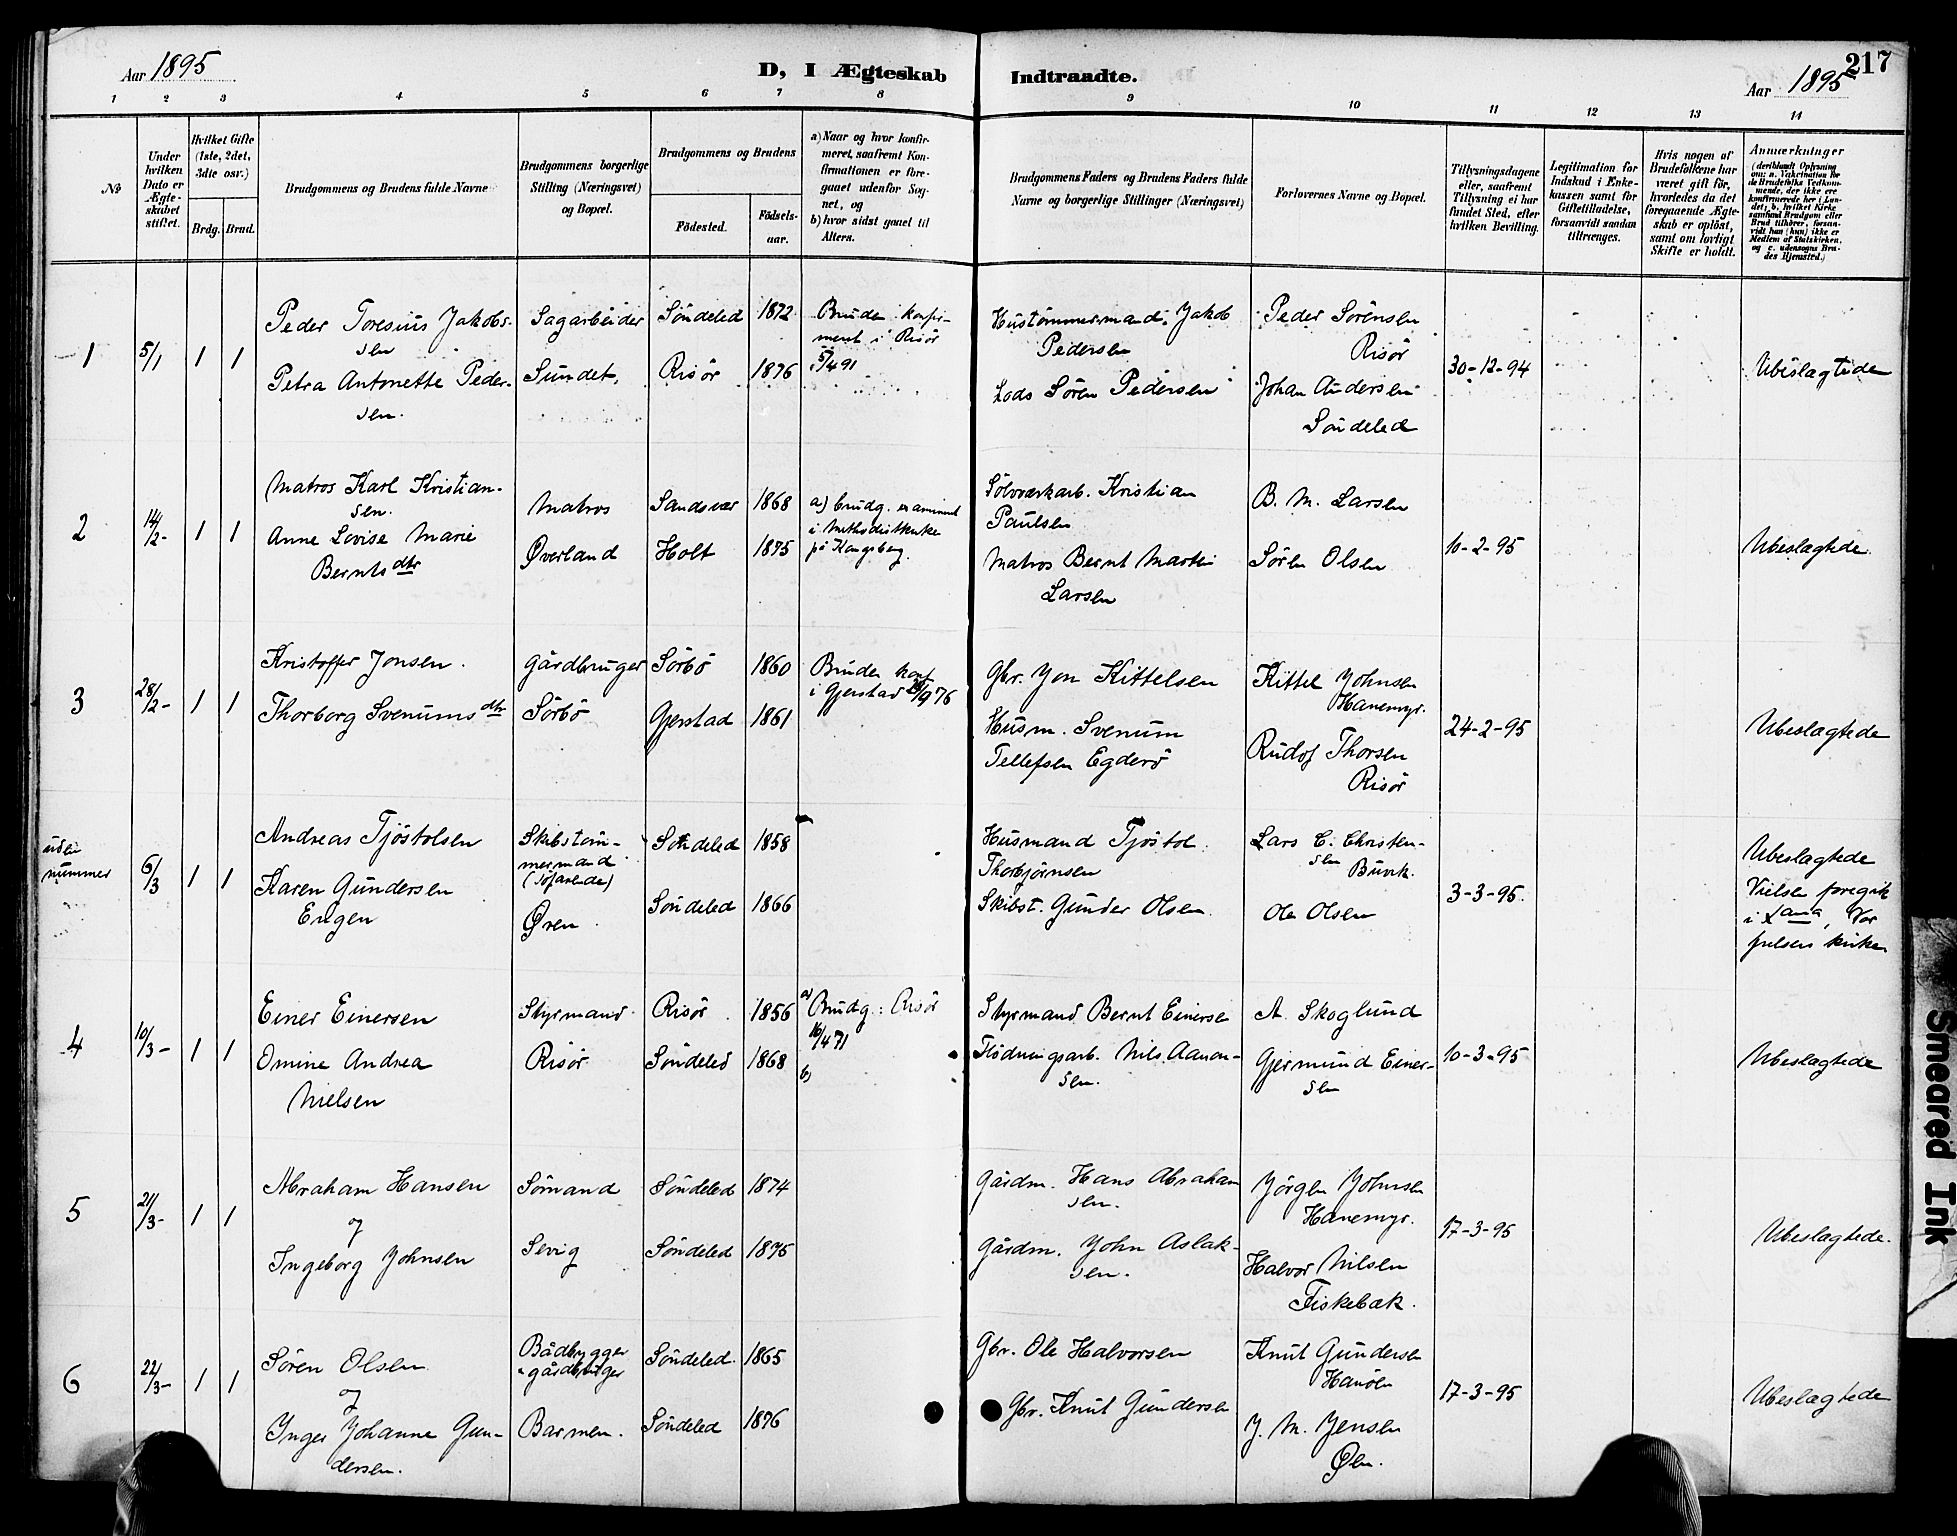 Aar 1895
D, I Ægteskab Indtraadte.
Aar 1895
217
1 2 3 4 5 6 7 8 9 10 11 12 13 14
№
Under
hvilken
Dato er
Ægte-
skabet
stiftet.
Hvilket Gifte
(1ste, 2det,
3die osv.)
Brdg. Brud.
Brudgommens og Brudens fulde Navne
Brudgommens borgerlige
Stilling (Næringsvei)
og Bopæl.
Brudgommens og Brudens
Fødested.
Fødsels-
aar.
a) Naar og hvor konfir-
meret, saafremt Kon-
firmationen er fore-
gaaet udenfor Sog-
net, og
b) hvor sidst gaaet til
Alters.
Brudgommens Faders og Brudens Faders fulde
Navne og borgerlige Stillinger (Næringsvei)
Forlovernes Navne og Bopæl.
Tillysningsdagene
eller, saafremt
Tillysning ei har
fundet Sted, efter
hvilken Bevilling.
Legitimation for
Indskud i Enke-
kassen samt for
Giftetilladelse,
forsaavidt saadan
tiltrænges.
Hvis nogen af
Brudefolkene har
været gift før,
hvorledes da det
foregaaende Ægte-
skab er opløst,
samt om lovligt
Skifte er holdt.
Anmærkninger
(deriblandt Oplysning
om: a. Vakcination for
de Brudefolks Vedkom-
mende, der ikke ere
konfirmerede her i Lan-
det; b. hvilket Kirke
samfund Brudgom eller
Brud tilhører, forsaa-
vidt han (hun) ikke er
Medlem af Statskirken,
og c. udensogns Bru-
des Hjemsted.)
1
5/1
1 1
Peder Toresius Jakob-
sen
Petra Antonette Peder-
sen.
Sagarbeider
Sundet.
Søndeled 1872
Risør 1876
Bruden konfir-
meret i Risør
5/4 91
Hustømmermand. Jakob
Pedersen
Lods Søren Pedersen
Peder Sørensen
Risør
Johan Andersen
Søndeled
30-12-94
Ubeslægtede
2
14/2-
1 1
Matros Karl Kristian-
sen.
Anne Lovise Marie
Berntsdtr
Matros
Øverland
Sandsvær 1868
Holt 1875
a) brudg. examineret
i Methodistkirke
på Kongsberg.
Sølvværkarb. Kristian
Paulsen
Matros Bernt Martin
Larsen
B. M. Larsen
Søren Olsen
10-2-95
Ubeslægtede.
3
28/2-
1 1
Kristoffer Jonsen.
Thorborg Svenumsdtr
Gårdbruger
Sørbø
Sørbø 1860
Gjerstad 1861
Bruden konf
i Gjerstad /9 76
Gbr. Jon Kittelsen
Husm. Svenum
Tellefsen Egderø
Kittel Johnsen
Hanemyr.
Rudof Thorsen
Risør
24-2-95
Ubeslægtede
uden
nummer
6/3
1 1
Andreas Tjøstolsen
Karen Gundersen
Engen
Skibstøm-
mermand
(søfarende)
Øren
Søndeled 1858
Søndeled 1866
Husmand Tjøstol
Thorbjørnsen
Skibst. Gunder Olsen.
Lars C. Christen-
sen
Buvik.
Ole Olsen
3-3-95.
Ubeslægtede
Vielsen foregik
i , Vor
frelsers kirke
4
10/3-
1 1
Einer Einersen
Omine Andrea
Nielsen
Styrmand
Risør
Risør 1856
Søndeled 1868
a) Brudg: Risør
16/4 71
b)
Styrmand Bernt Einersen
Flødningsarb. Nils Aanon-
sen.
A. Skoglund
Gjermund Einer-
sen
10-3-95
Ubeslægtede
5
21/3-
1 1
Abraham Hansen
og
Ingeborg Johnsen
Sømand
Sevig
Søndeled 1874
Søndeled 1875
Gårdm. Hans Abraham
sen.
Gårdm. John Aslak-
sen.
Jørgen Johnsen
Hanemyr.
Halvor Nilsen
Fiskebæk.
17-3-95
Ubeslægtede.
6
22/3-
1 1
Søren Olsen
og
Inger Johanne Gun-
dersen.
Bådbygger
gårdbruger
Barmen.
Søndeled. 1865
Søndeled 1876
Gbr. Ole Halvorsen
Gbr. Knut Gundersen
Knut Gundersen
Hanøen
J. M. Jensen
Øen.
17-3-95
Ubeslægtede
Smeared Ink